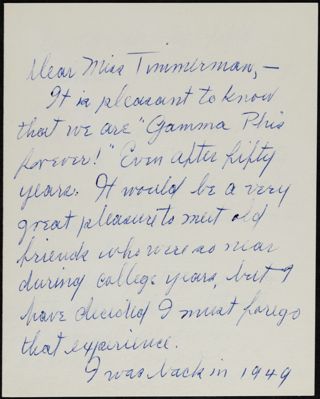 Dear Miss Timmerman, –
It is pleasant to know
that we are "Gamma Phis
forever!" Even after fifty
years. It would be a very
great pleasure to meet old
friends who were so near
during college years, but I
have decided I must forego
that experience.
I was back in 1949